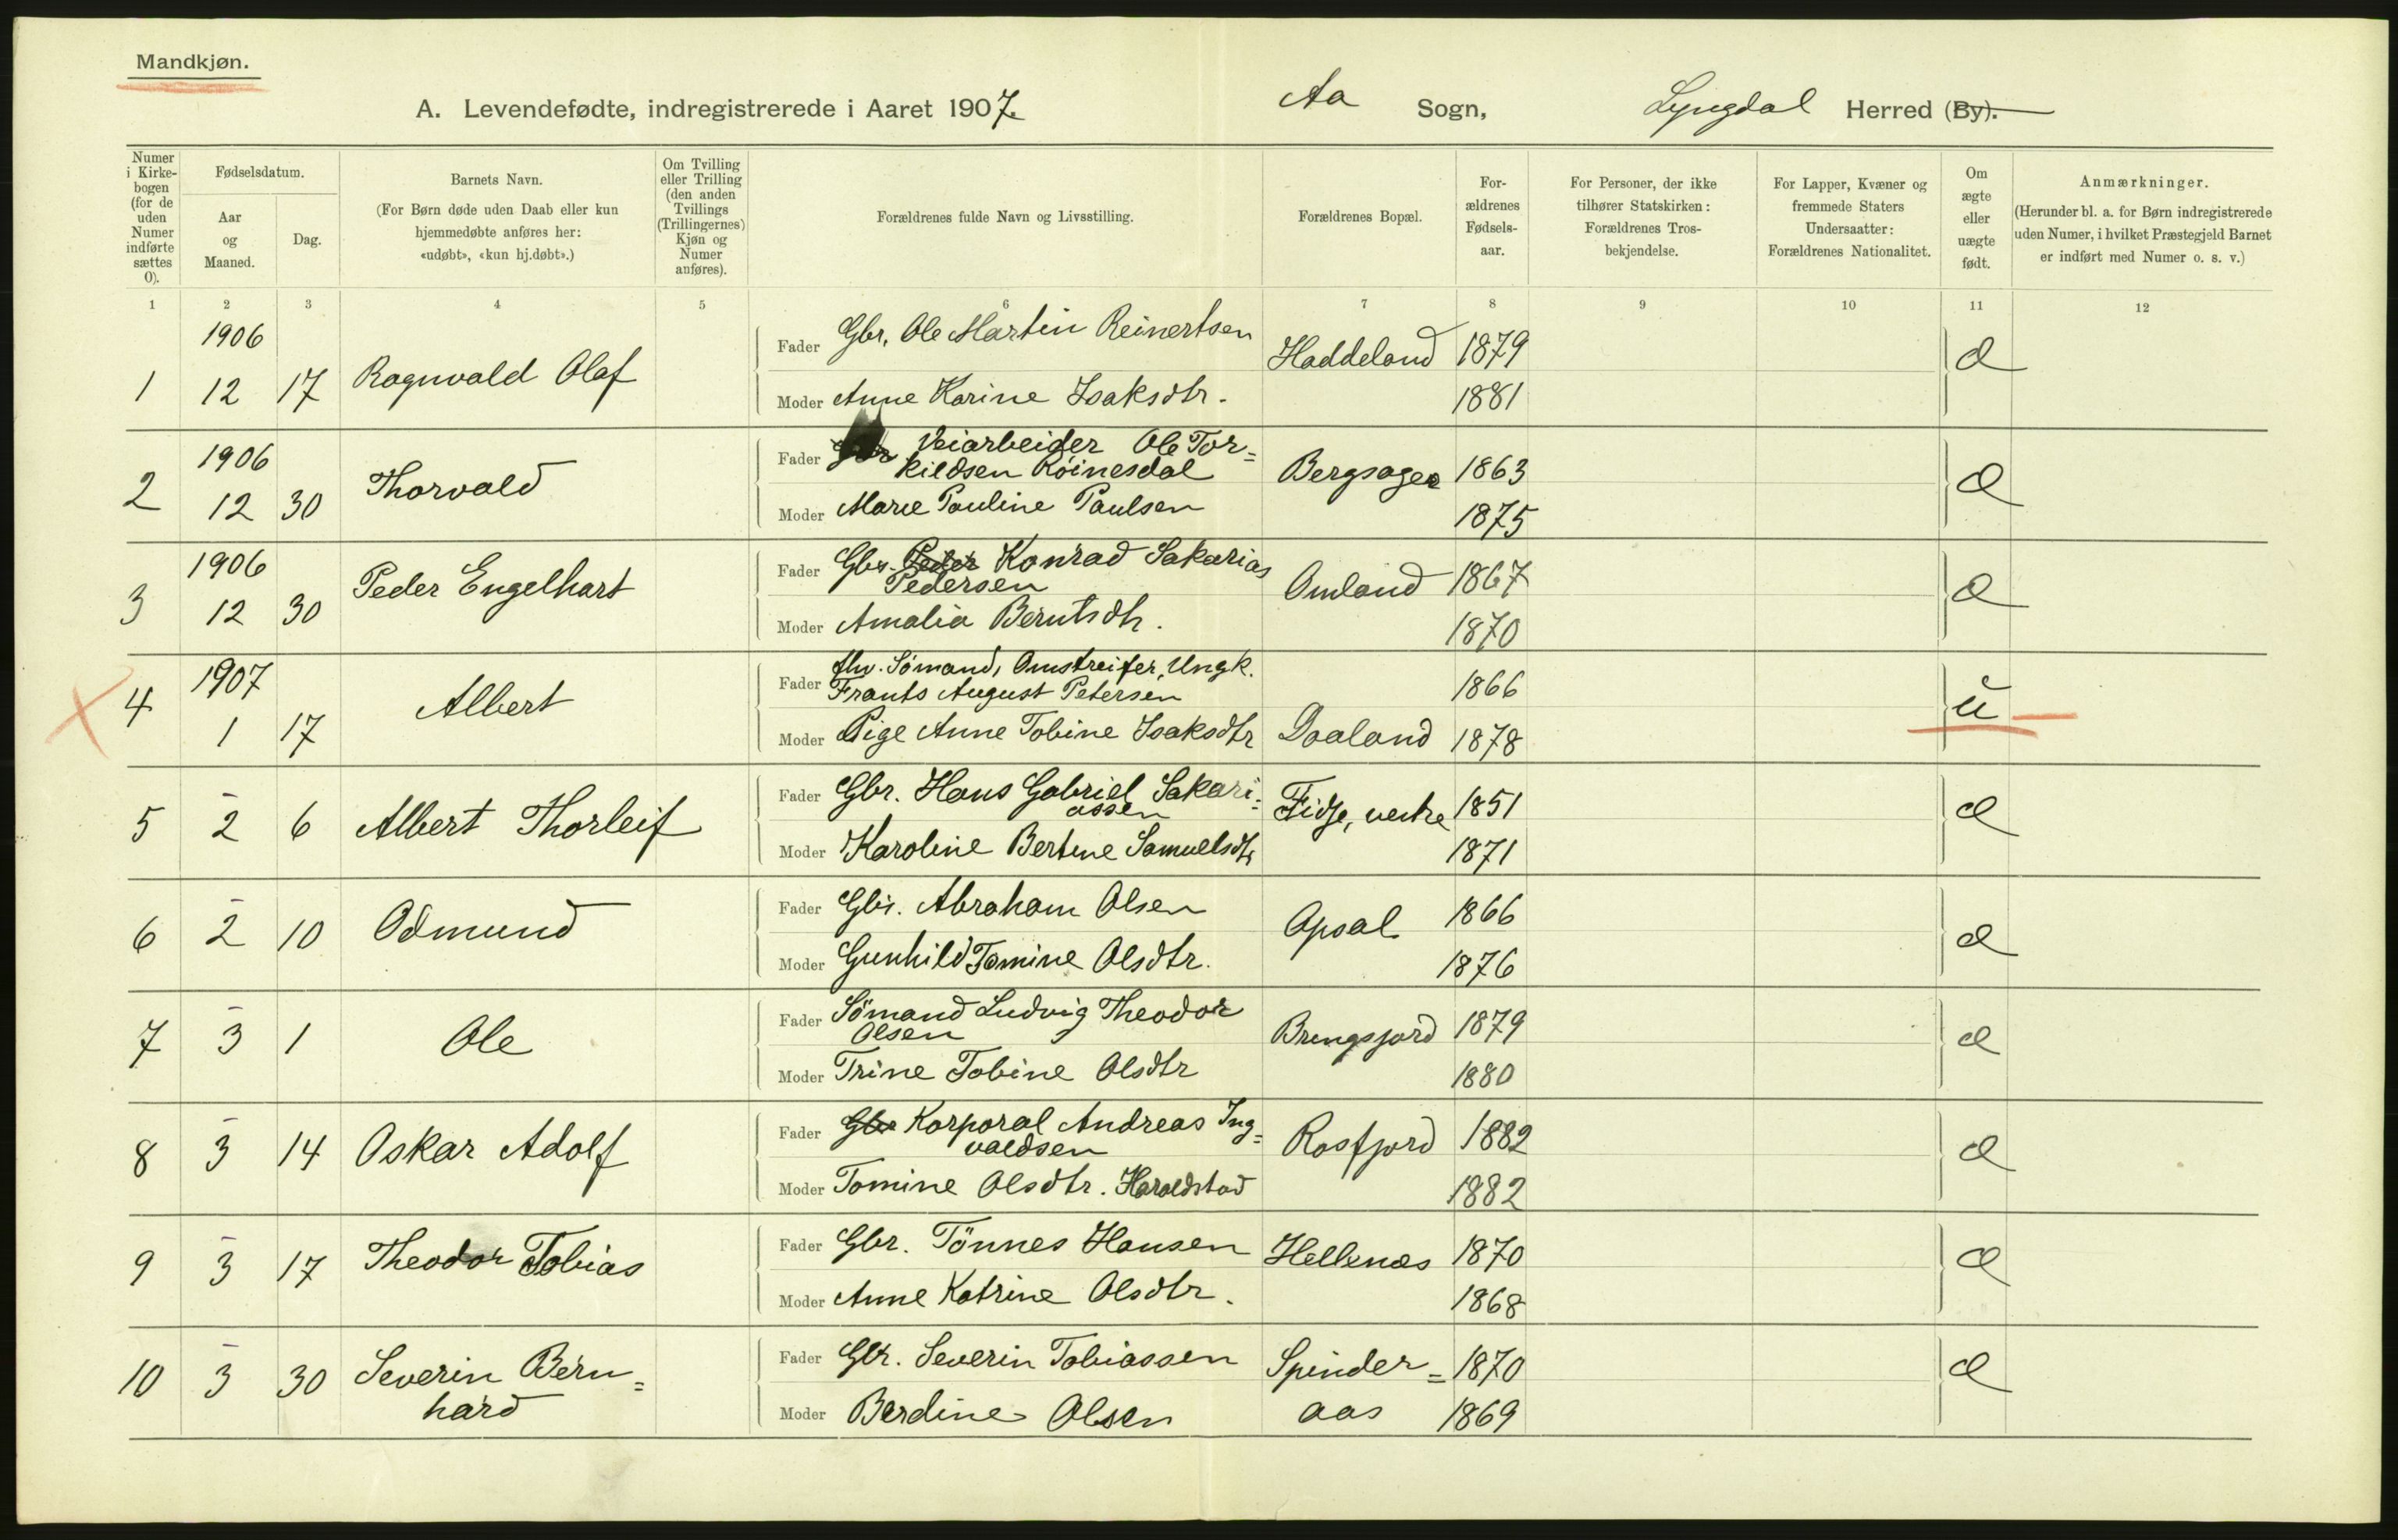 Mandkjøn.
A. Levendefødte, indregistrerede i Aaret 1907. Aa Sogn, Lyngdal Herred (By).
Numer i Kirkebogen (for de uden Numer indførte sættes 0).
Fødselsdatum.
Aar og Maaned.
Dag.
Barnets Navn.
(For Børn døde uden Daab eller kun hjemmedøbte anføres her: «udøbt», «kun hj.døbt».)
Om Tvilling eller Trilling (den anden Tvillings (Trillingernes) Kjøn og Numer anføres).
Forældrenes fulde Navn og Livsstilling.
Forældrenes Bopæl.
Forældrenes Fødselsaar.
For Personer, der ikke tilhører Statskirken: Forældrenes Trosbekjendelse.
For Lapper, Kvæner og fremmede Staters Undersaatter: Forældrenes Nationalitet.
Om ægte eller uægte født.
Anmærkninger.
(Herunder bl. a. for Børn indregistrerede uden Numer, i hvilket Præstegjeld Barnet er indført med Numer o. s. v.)
1 2 3 4 5 6 7 8 9 10 11 12
1 1906 12 17 Ragnvald Olaf Fader Gbr. Ole Martin Reinertsen Haddeland 1879 æ
Moder Anne Karine Isaksdtr. 1881
2 1906 12 30 Thorvald Fader Gbr Veiarbeider Ole Tor=
kildsen Röinesdal Bergsager 1863 æ
Moder Marie Pauline Paulsen 1875
3 1906 12 30 Peder Engelhart Fader Gbr. Peder Konrad Sakarias
Pedersen Omland 1867 æ
Moder Amalia Berntsdtr. 1870
4 1907 1 17 Albert Fader fhv. Sömand, Omstreifer, Ungk.
Frants August Petersen 1866 u
Moder Pige Anne Tobine Isaksdtr Daaland 1878
5 - 2 6 Albert Thorleif Fader Gbr. Hans Gabriel Sakari=
assen Fidje, vestre 1851 æ
Moder Karoline Bertine Samuelsdtr 1871
6 - 2 10 Odmund Fader Gbr. Abraham Olsen Apsal 1866 æ
Moder Gunhild Tomine Olsdtr. 1876
7 - 3 1 Ole Fader Sömand Ludvig Theodor
Olsen Bringsjord 1879 æ
Moder Trine Tobine Olsdtr 1880
8 - 3 14 Oskar Adolf Fader Gbr Korporal Andreas Ing=
valdsen Rosfjord 1882 æ
Moder Tomine Olsdtr. Haraldstad 1882
9 - 3 17 Theodor Tobias Fader Gbr. Tönnes Hansen Hellenæs 1870 æ
Moder Anne Katrine Olsdtr. 1868
10 - 3 30 Severin Bern=
hard Fader Gbr. Severin Tobiassen Spinder= 1870 æ
Moder Berdine Olsen aas 1869